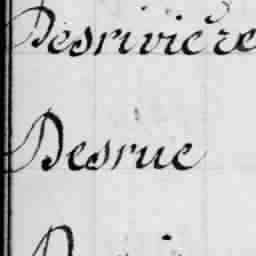 Desrivière
Desrue